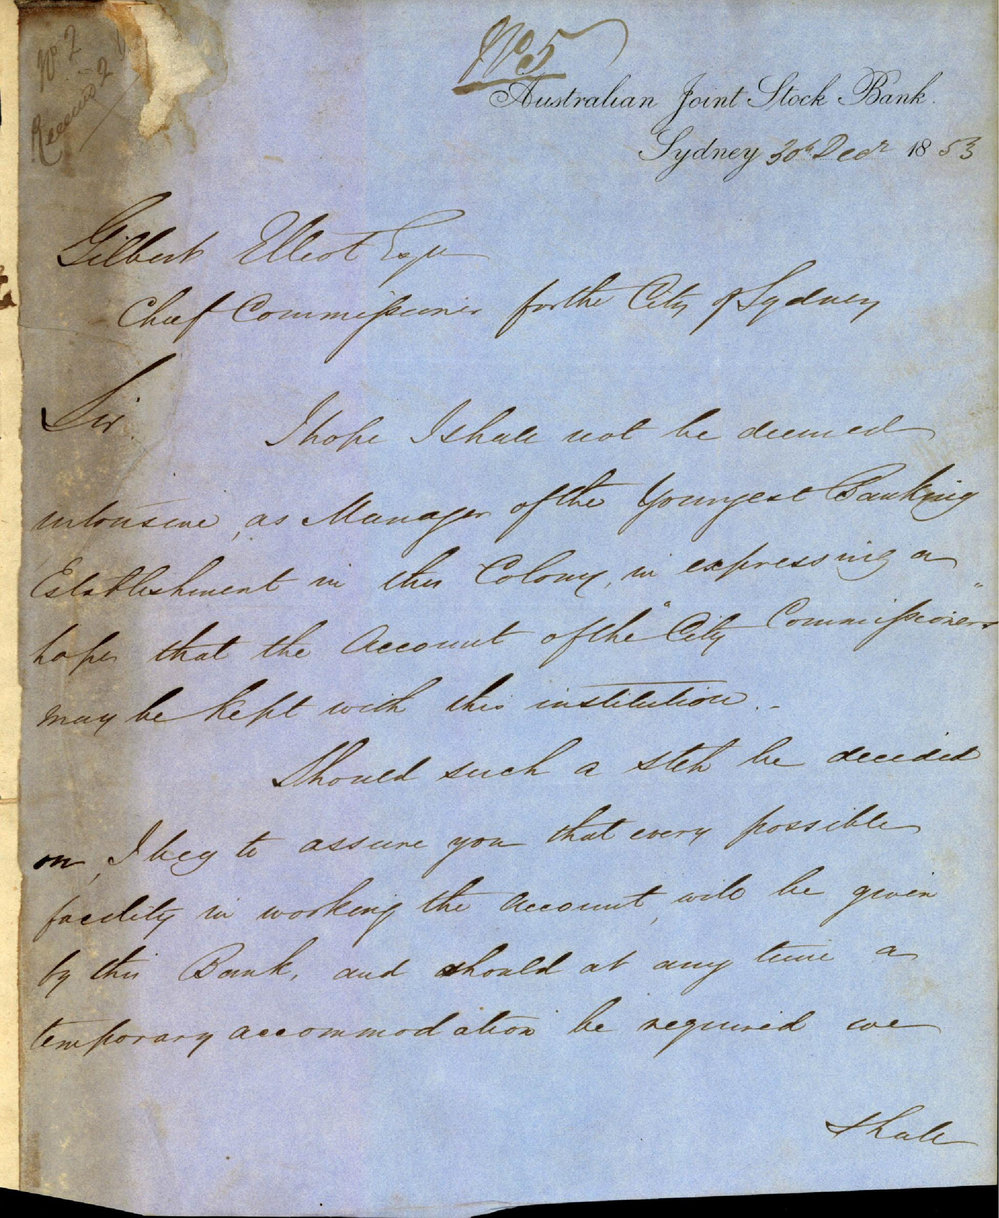 No 5
No 2
Received 2
Australian Joint Stock Bank.
Sydney 30th Decr 1853
Gilbert Elliot Esqr
Chief Commissioner for the City of Sydney
Sir.
I hope I shall not be deemed
intrusive, as Manager of the Youngest Banking
Establishment in this Colony, in expressing a
hope that the Account of the "City Commissioners"
may be kept with this institution.-
Should such a step be decided
on, I beg to assure you that every possible
facility in working the Account, will be given
by this Bank, and should at any time a
temporary accommodation be required we
shall